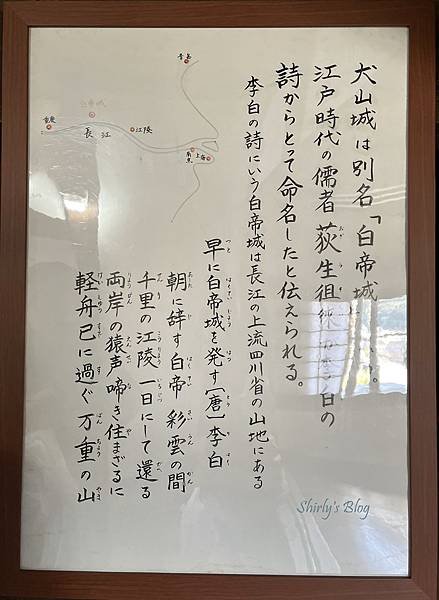 犬山城は別名「白帝城
江戸時代の儒者 荻生徂徠 白の
詩からとって命名したと伝えられる。
李白の詩にいう白帝城は長江の上流四川省の山地にある
早に白帝城を発す[唐]李白
朝に辞す白帝 彩雲の間
千里の江陵 一日にして還る
両岸の猿声啼き住まざるに
軽舟已に過ぐ 万重の山
白帝城
重慶
長江
江陵
南京
上海
Shirly's Blog